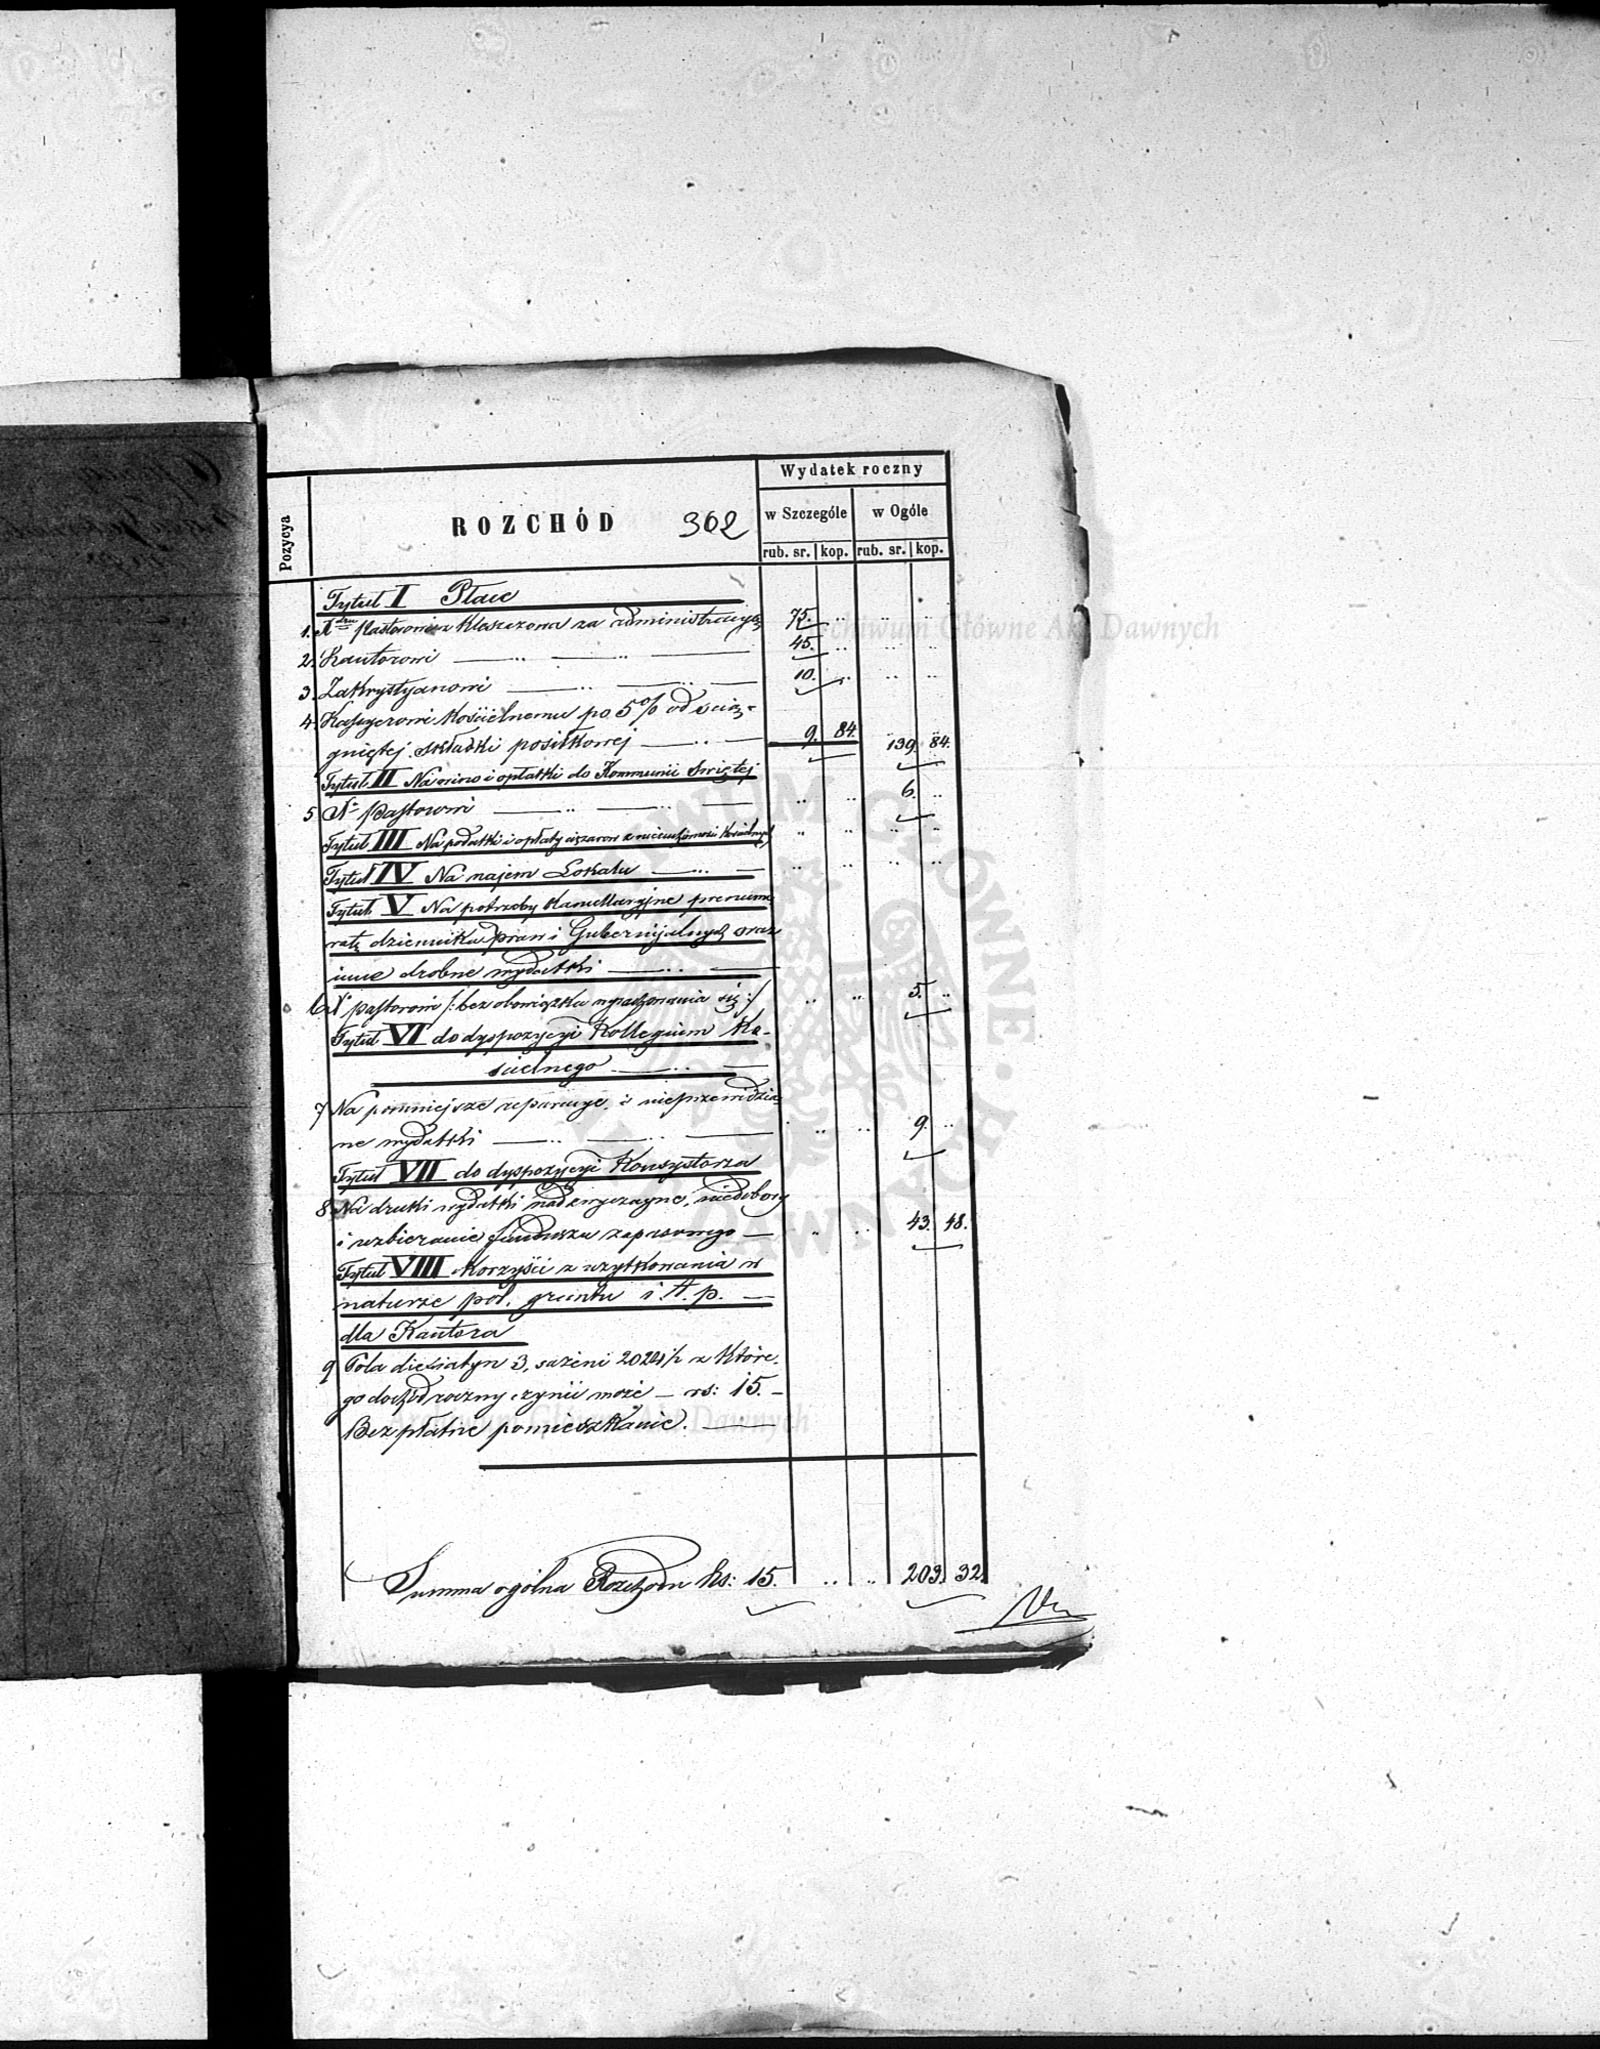 Wydatek roczny
Pozycya
ROZCHÓD 362
w Szczególe w Ogóle
rub. sr. kop. rub. sr. kop.
Tytuł I Płace
1. Pastorowi za administracyą 75. ..
2. Kantorowi 45. ..
3. Zakrystyanowi 10. ..
4. Kassyerowi Kościelnemu po 5% od ścią-
gniętej składki posiłkowej 9. 84. 139. 84.
Tytuł II Na wino i opłatki do Kommunii Świętej
5 Xs Pastorowi 6. ..
Tytuł III Na podatki i opłaty ciężarow z nieruchomości Kościelnych
Tytuł IV Na najem Lokalu
Tytuł V Na potrzeby Kancellaryjne prenume
ratę dziennika praw i Gubernijalnych oraz
inne drobne wydatki
6 Xs pastorowi /: bez obowiązku wyrachowania się :/ 5. ..
Tytuł VI do dyspozycyi Kollegium Ko-
ścielnego
7 Na pomniejsze reparacye i nieprzewidzia-
ne wydatki 9. ..
Tytuł VII do dyspozycyi Konsystorza
8 Na druki wydatki nadzwyczayne, niedobory
i uzbieranie funduszu zapasowego 43. 48.
Tytuł VIII Korzyści z użytkowania w
naturze pól, gruntu i t. p.
dla Kantora
9 Pola diesiatyn 3, sażeni 2020 1/2 z które-
go dochód roczny czynić może rs: 15.
Bezpłatne pomieszkanie.
Summa ogólna Rozchodu Rs: 15. .. .. 203. 32.
Archiwum Główne Akt Dawnych
Archiwum Główne Akt Dawnych
ARCHIWUM GŁÓWNE AKT DAWNYCH